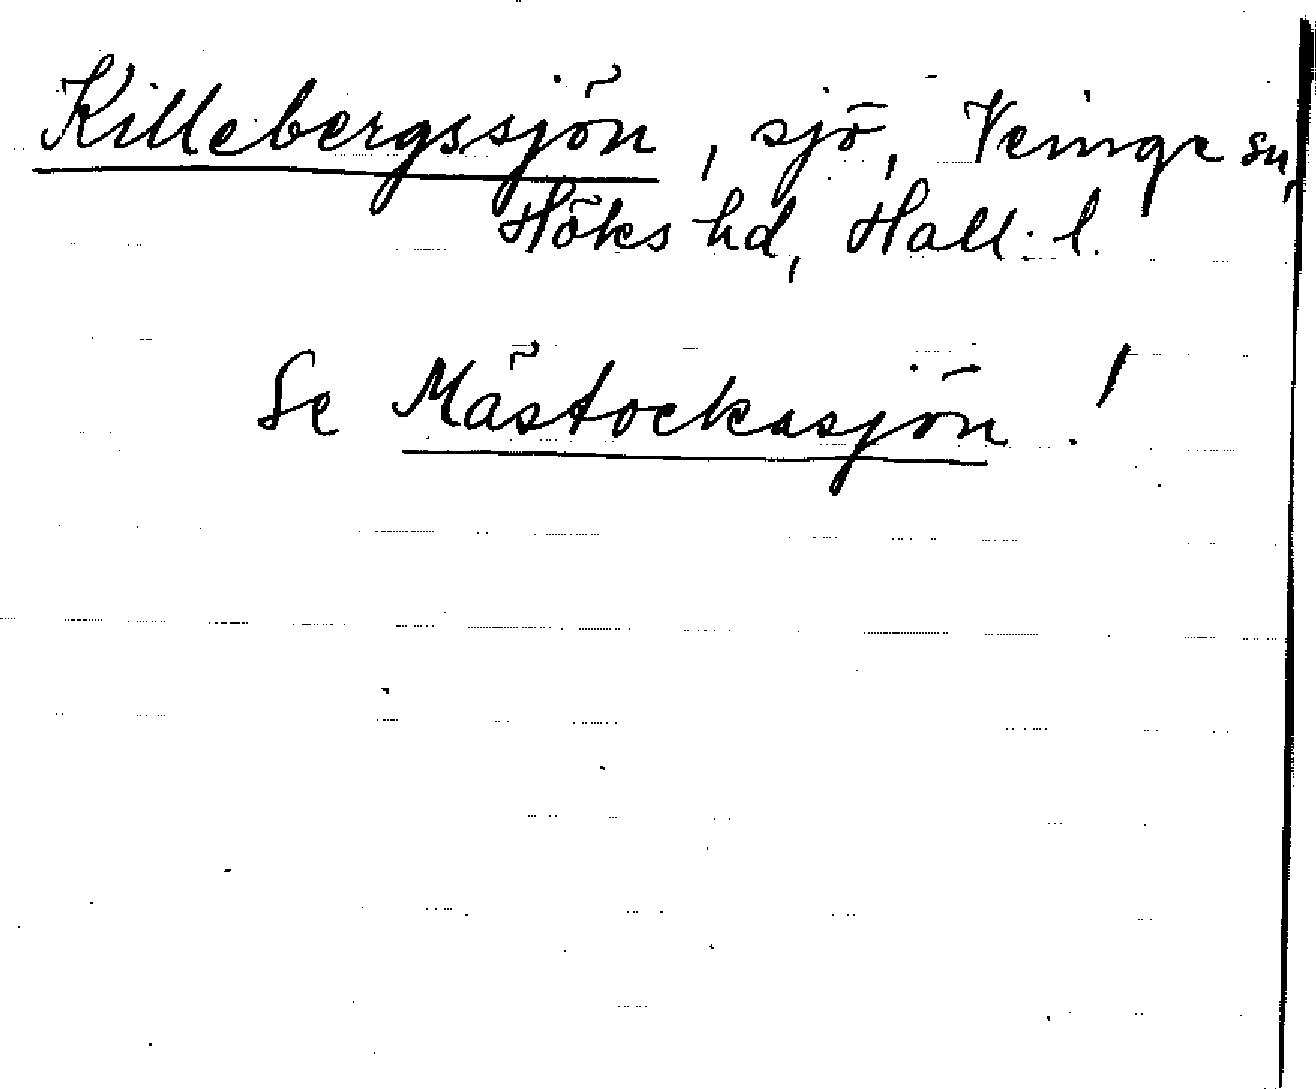 Killebergssjön, sjö, Veinge sn,
Höks hd, Hall. l.
Se Mästockasjön!